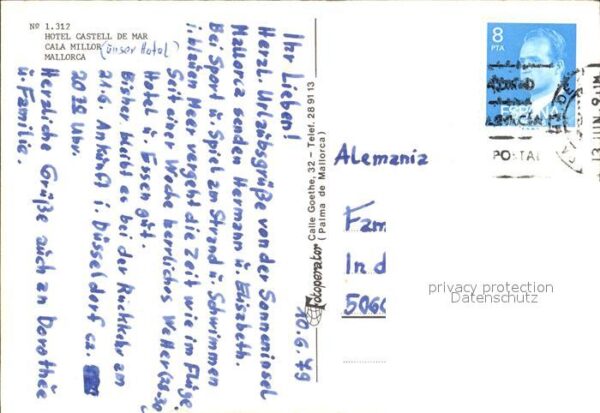 Nº 1.312
HOTEL CASTELL DE MAR
CALA MILLOR (unser Hotel)
MALLORCA
10.6.79
Ihr Lieben!
Herzl. Urlaubsgrüße von der Sonneninsel
Mallorca senden Hermann u. Elisabeth.
Bei Sport u. Spiel am Strand u. Schwimmen
i. blauen Meer vergeht die Zeit wie im Fluge.
Seit einer Woche herrliches Wetter (28-30
Hotel u. Essen gut.
Bisher bleibt es bei der Rückkehr am
21.6. Ankunft i. Düsseldorf ca.
20 38 Uhr.
Herzliche Grüße auch an Dorothée
u. Familie.
Fotoperator
Calle Goethe, 32 – Telef. 28 91 13
(Palma de Mallorca)
8
PTA
ESPAÑA
POSTAL
13 JUN 9
Alemania
Fam
In d
506
privacy protection
Datenschutz